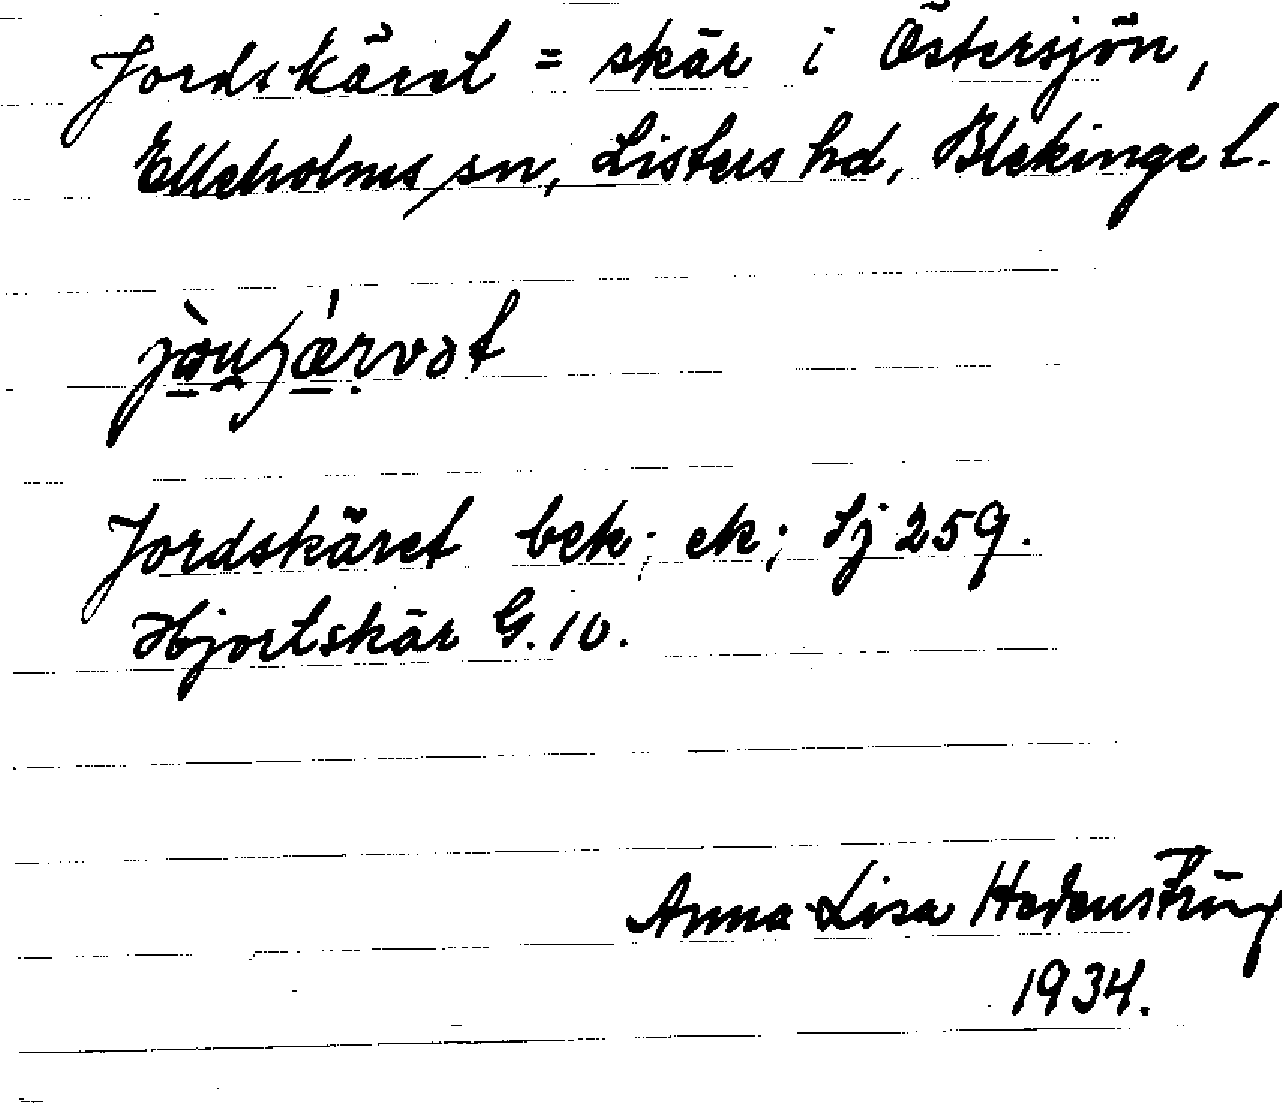 Jordskäret = skär i Östersjön,
Elleholms sn, Listers hd, Blekinge l.
Jordskäret bek; ek; Sj 259.
Hjortskär G. 10.
Anna-Lisa Hedenström
1934.